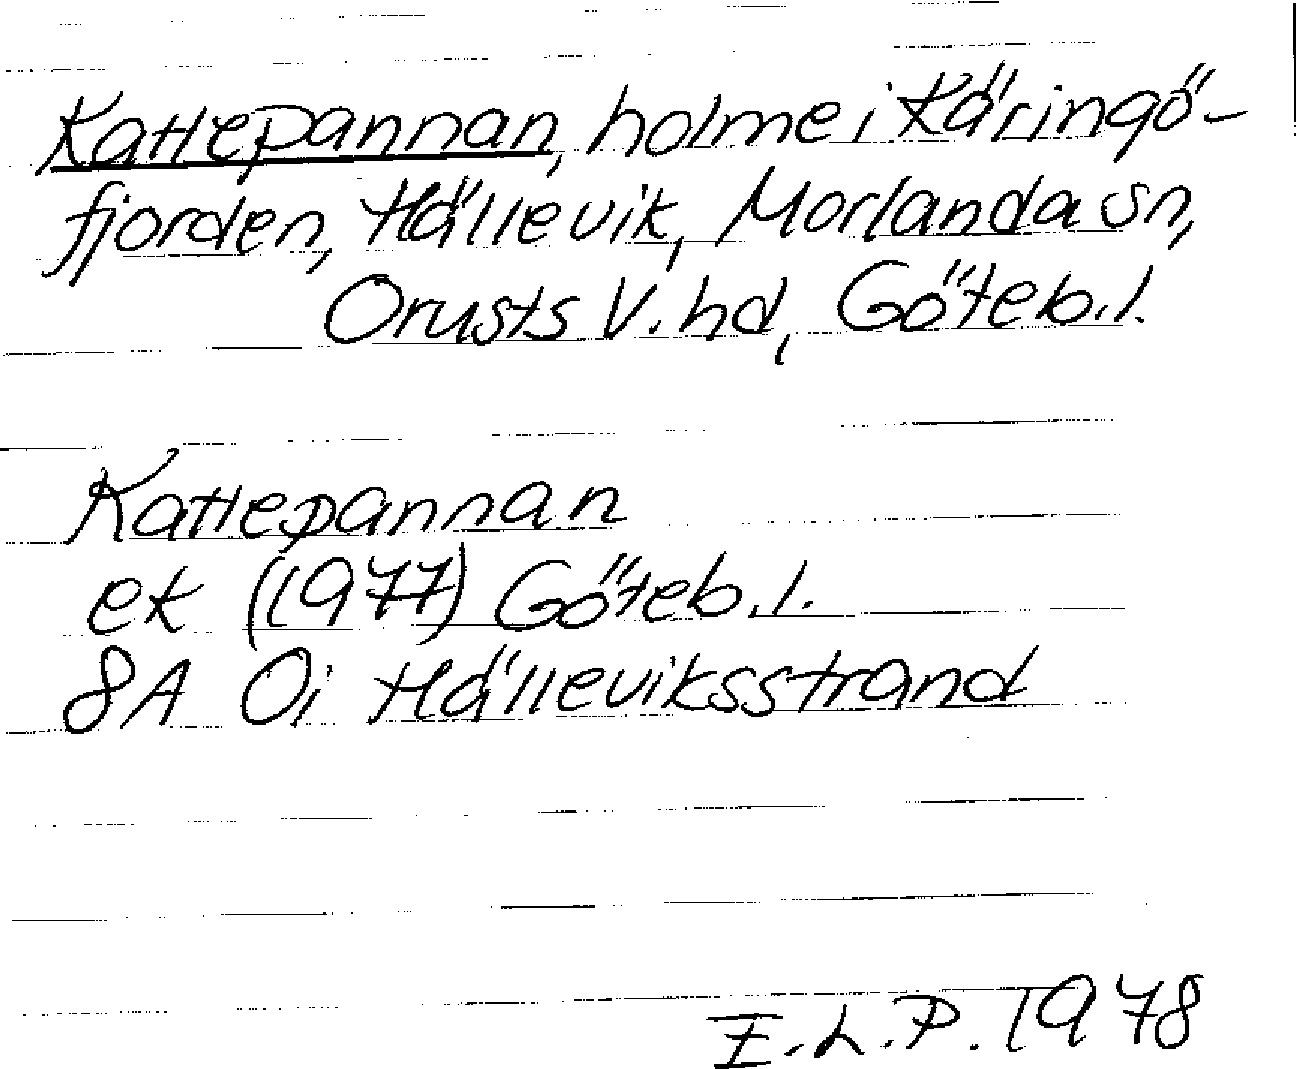 Kattepannan, holme i Käringö-
fjorden, Hällevik, Morlanda sn,
Orusts V. hd, Göteb. l.
Kattepannan
ek (1977) Göteb. l.
8A 0i Hälleviksstrand
E. L. P. 1978